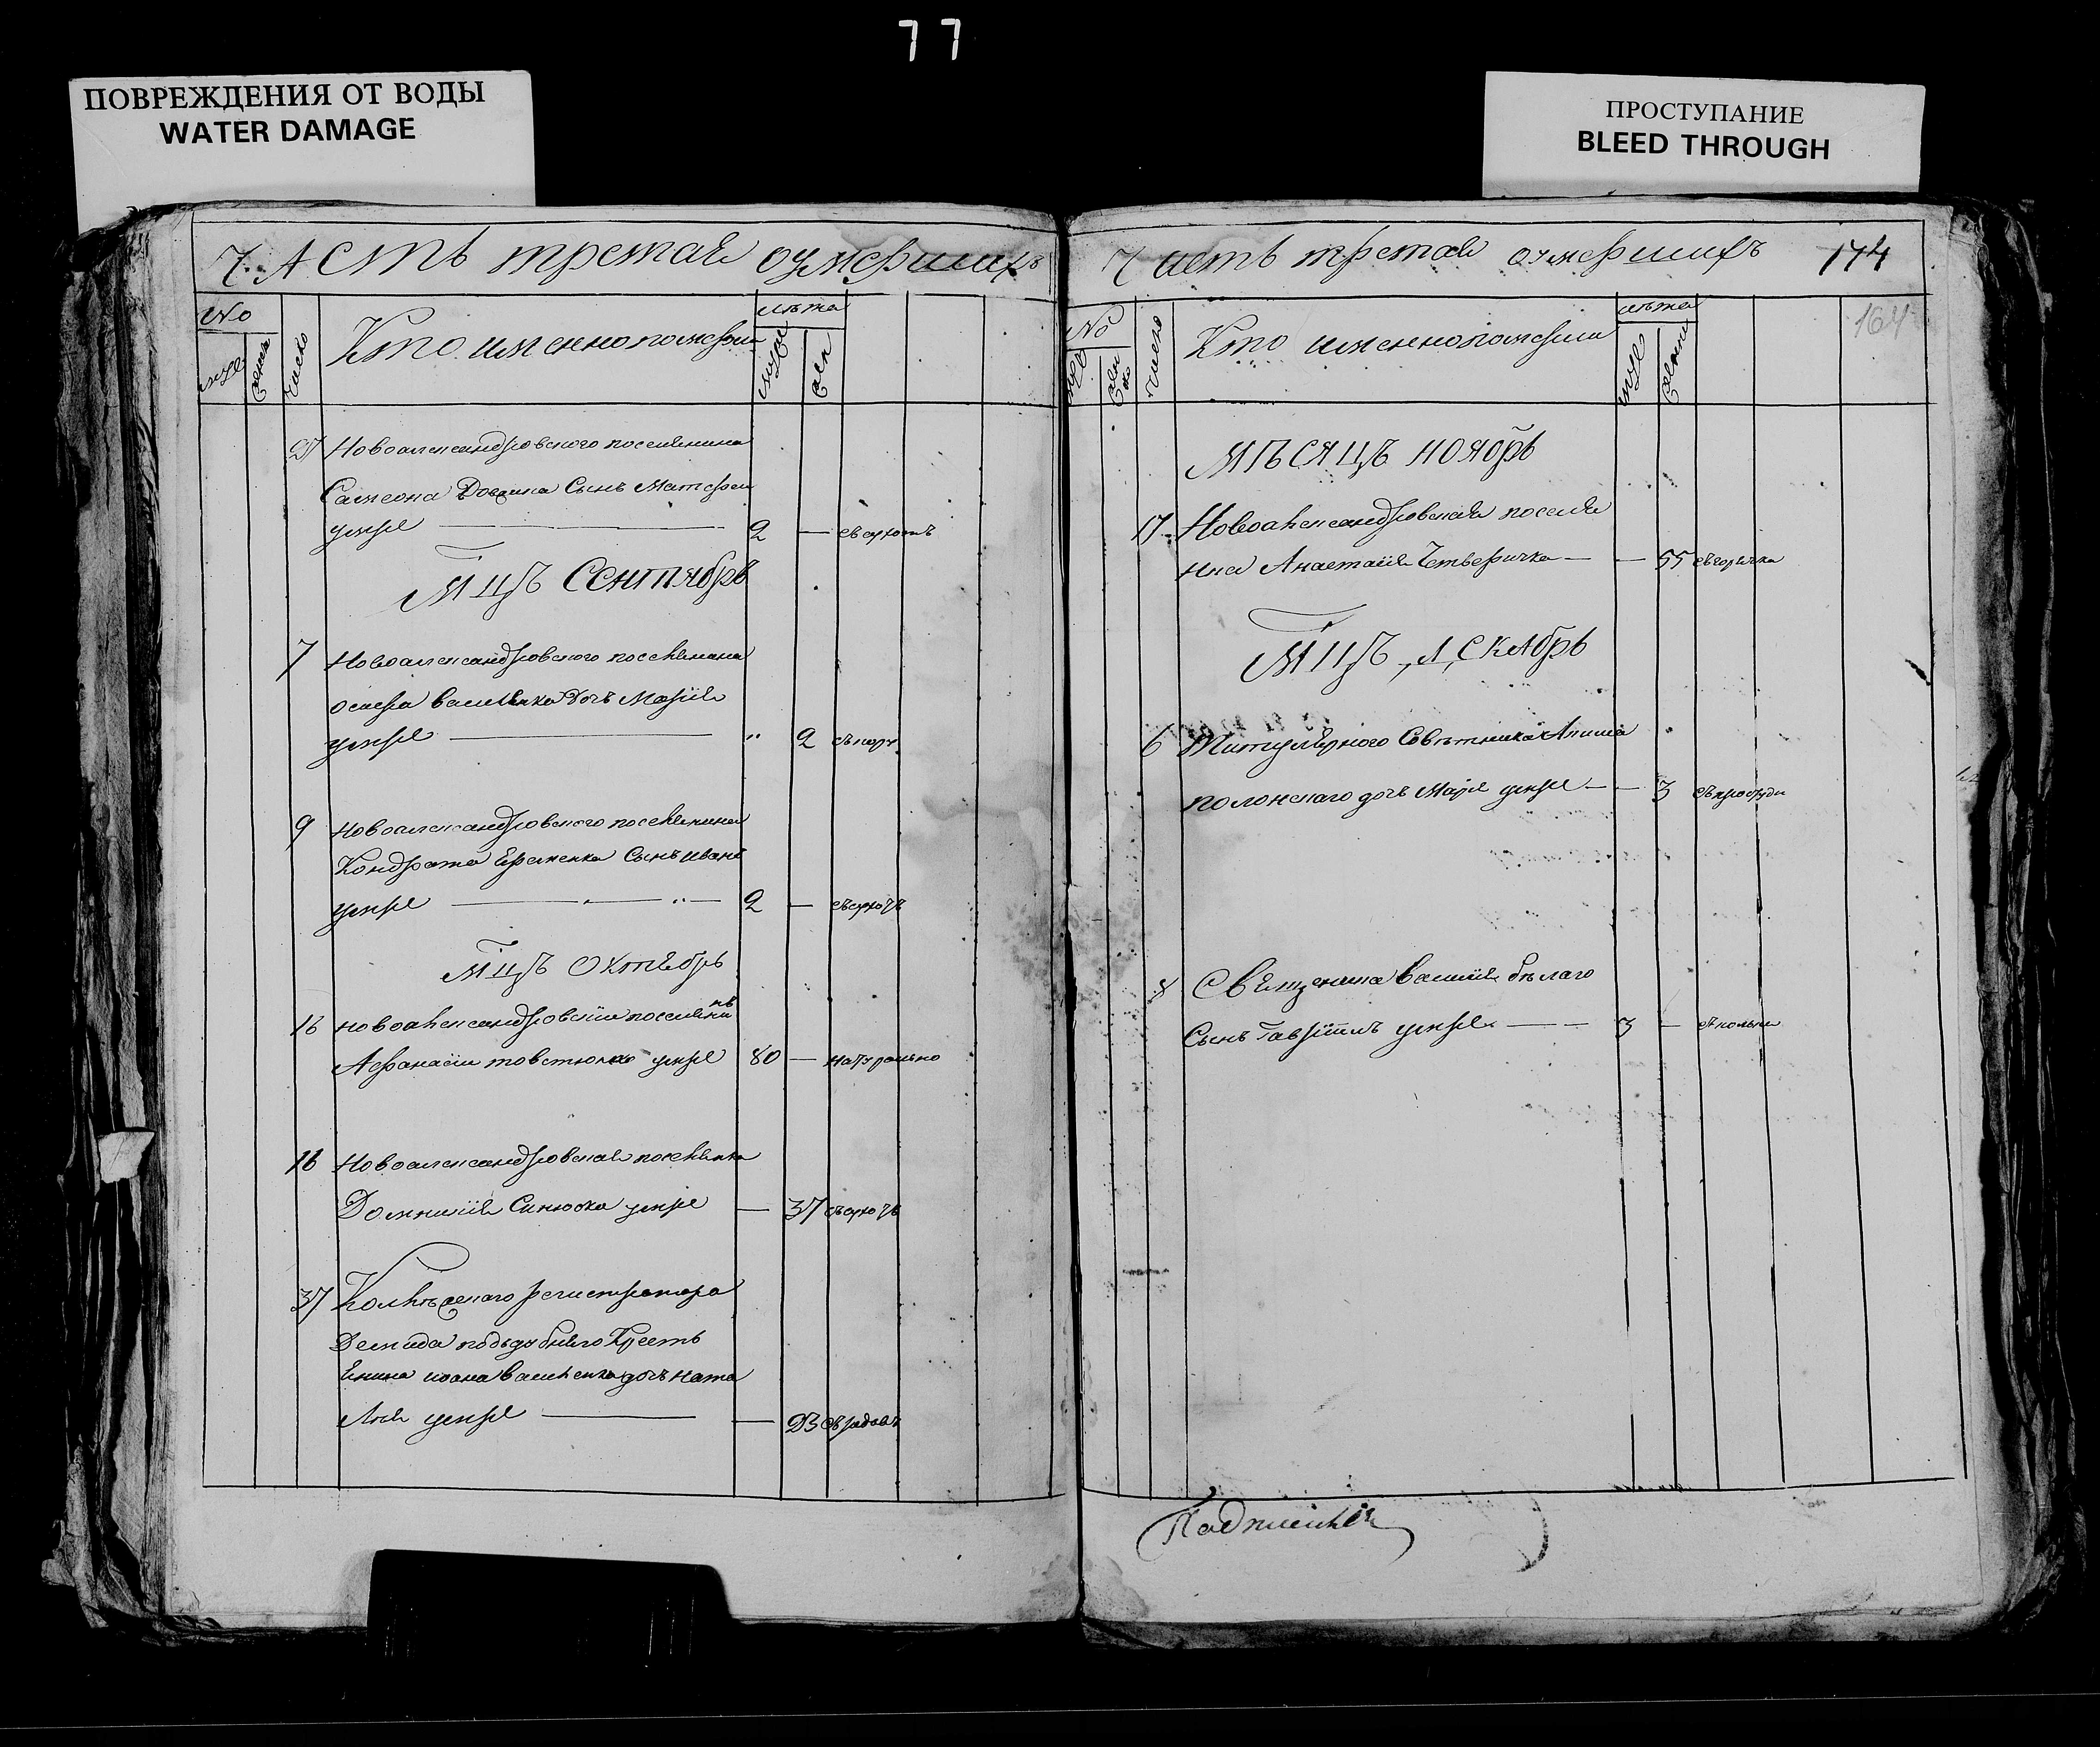 77
ПОВРЕЖДЕНИЯ ОТ ВОДЫ
WATER DAMAGE
ПРОСТУПАНИЕ
BLEED THROUGH
ЧАСТЬ третая оумершихъ
No
число
Кто именно померли
лѣта
27 Новоалександровского поселянина
Самеона Сынъ Матфеи
умре 2 — сухотъ
Мцъ Сентябрь
7 Новоалександровского поселянина
Василенка дочь Марія
умре " 2
9 Новоалександровского поселянина
Кондрата Еременка Сынъ Иванъ
умре 2 —
Мцъ Октябрь
16 Новоалександровскій поселянинъ
Афанасіи товстюкъ умре 80 — натурально
16 Новоалександровская поселянка
Синюска умре — 37
37 Колѣжского регистратора
Демида Крестъ
янина иоана Василенка дочь Ната
лия умре — 23
Часть третая оумершихъ 174
164
No
число
Кто именно померли
лѣта
Мѣсяцъ Ноябрь
17 Новоалександровская поселя
нка Анастасія Четверичка — — 55 горячка
Мцъ Декабрь
6 Титулярного Совѣтника
полонского дочь Марія умре — — 3 съ простуди
8 Священика Василія бѣлаго
Сынъ Гавріилъ умре — 3 —